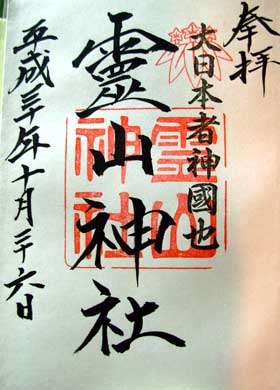 奉拝
大日本者神國也
靈山神社
霊山神社
平成三十年十月二十六日